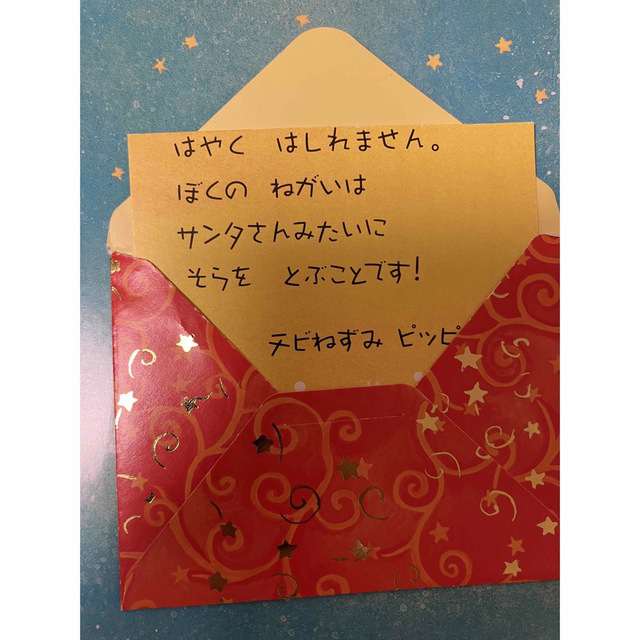 はやく はしれません。
ぼくの ねがいは
サンタさんみたいに
そらを とぶことです!
チビねずみ ピッピ